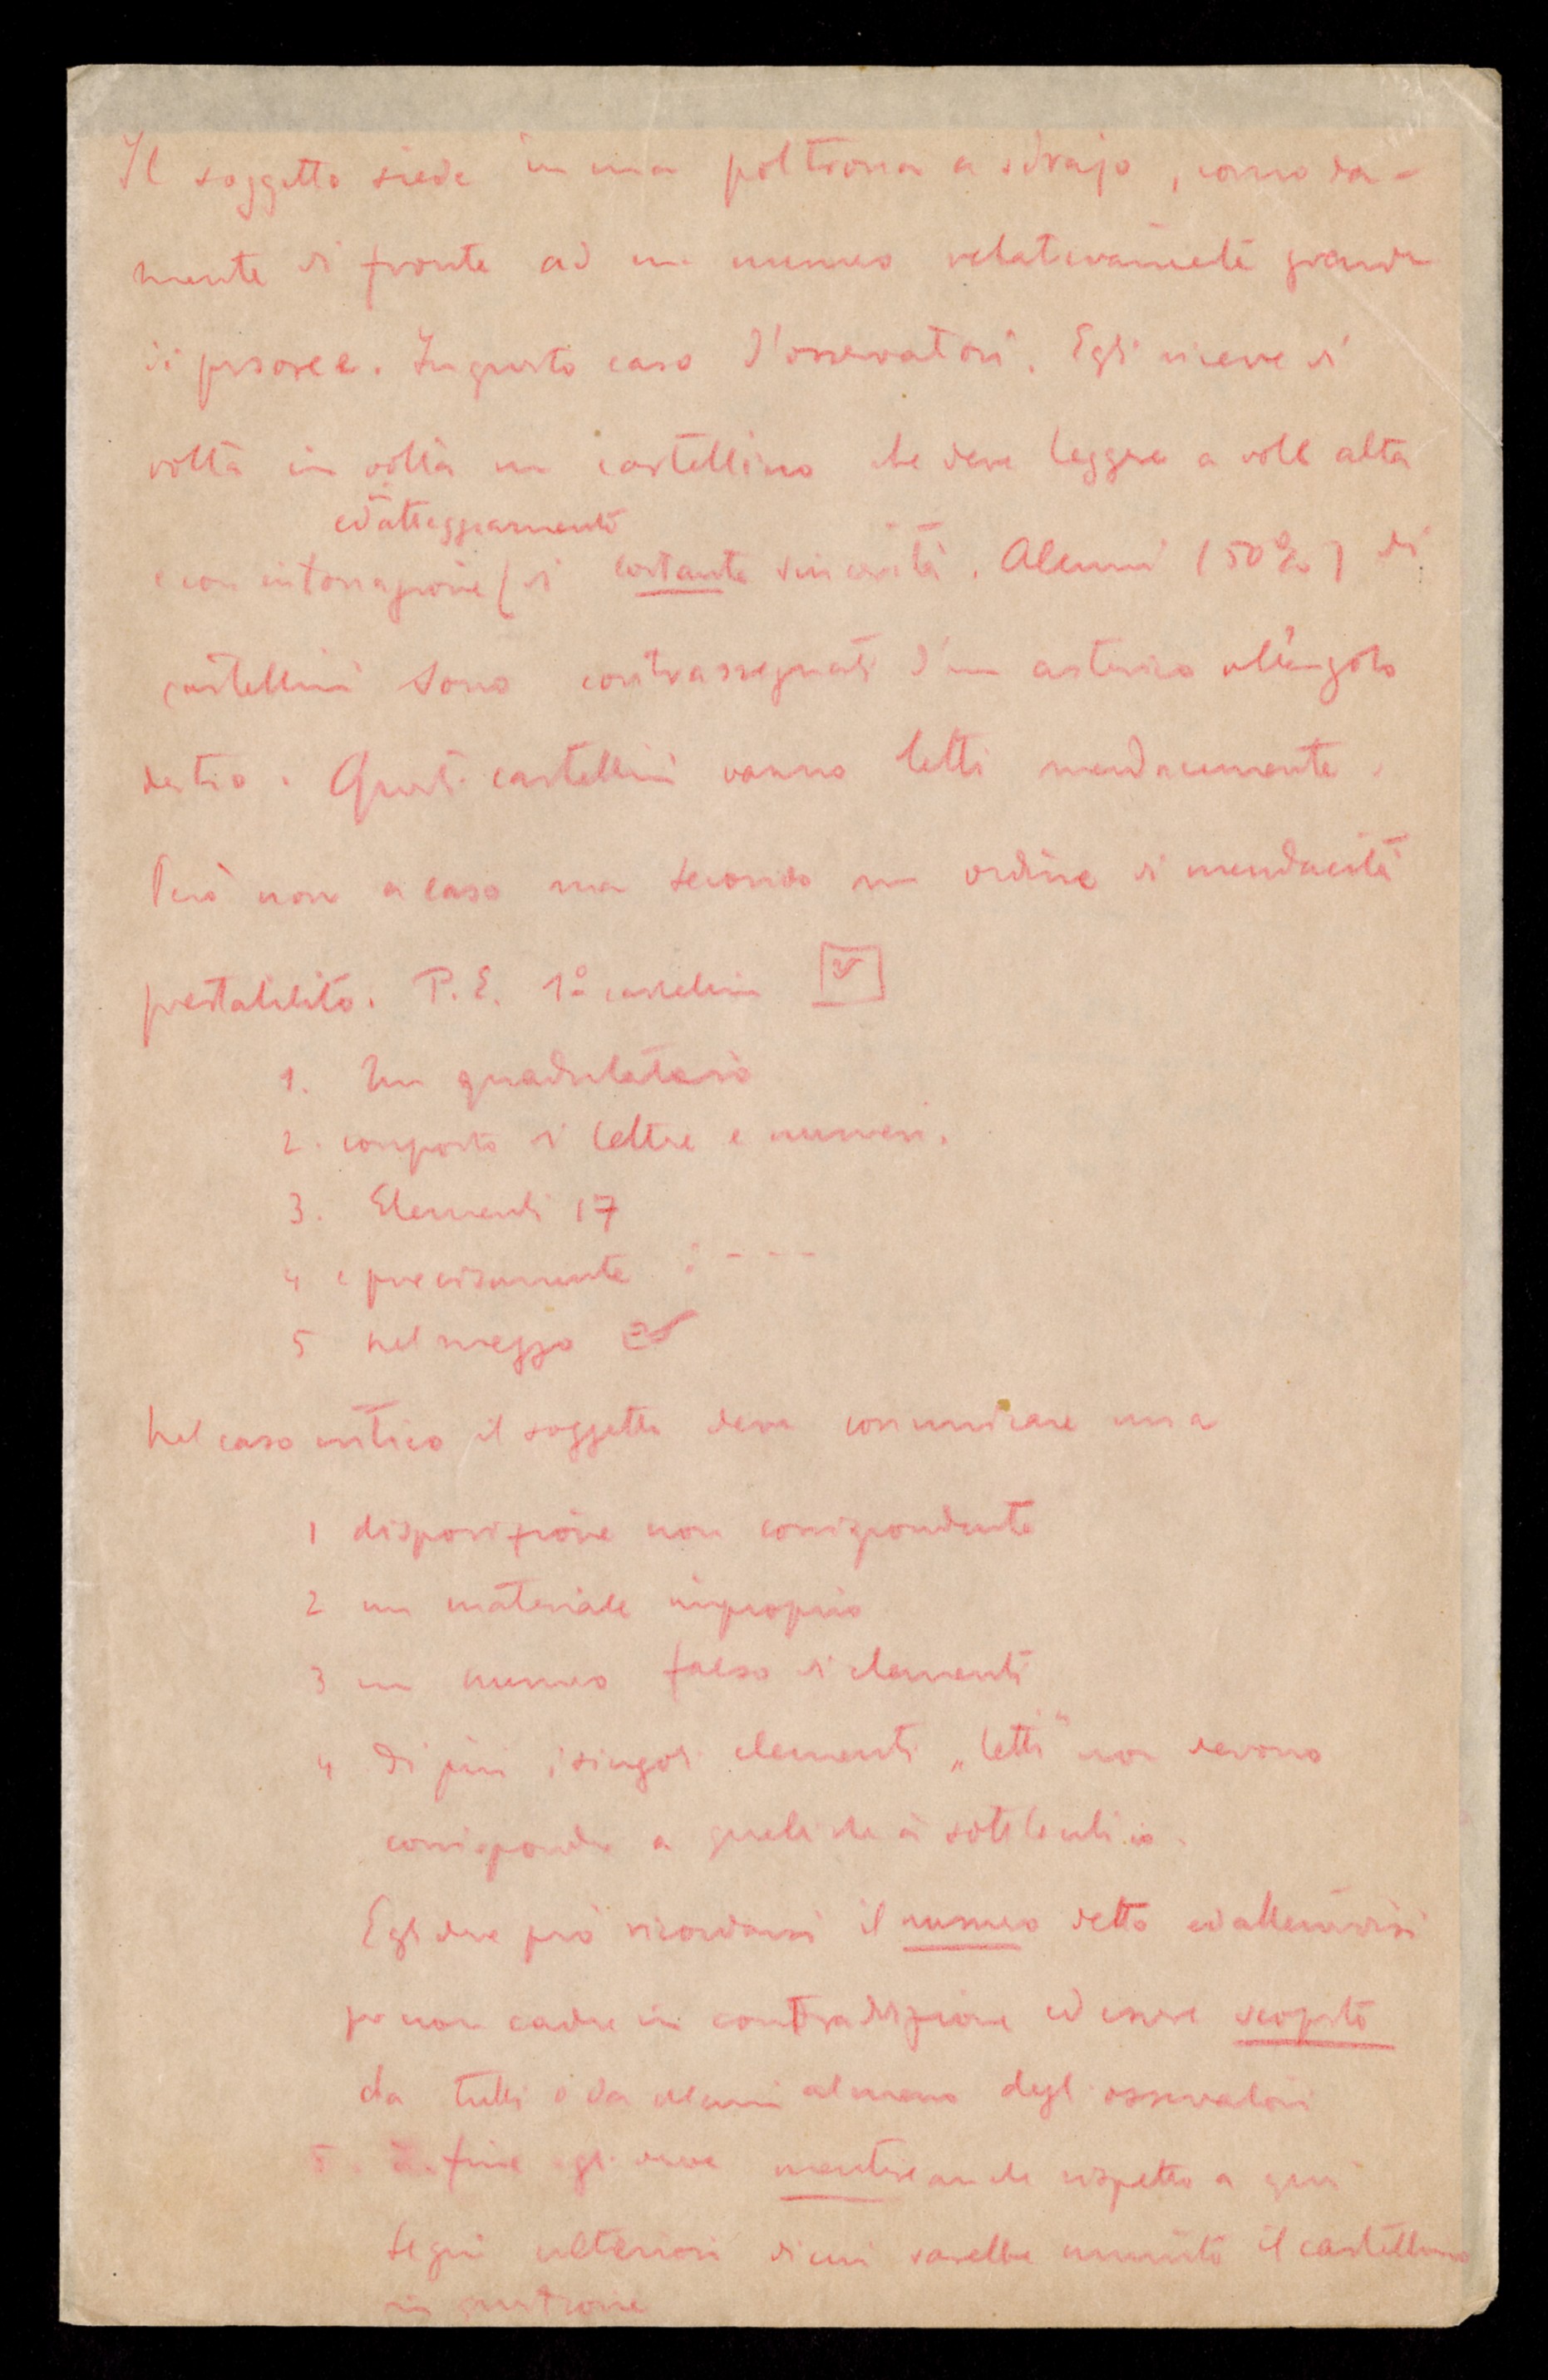 Il soggetto siede in una poltrona a sdrajo, comoda-
mente di fronte ad un numero relativamente grande
di persone. In questo caso d'osservatori. Egli riceve di
volta in volta un cartellino che deve leggere a voce alta
ed atteggiamento
e con intonazione / di costante sincerità. Alcuni (50%) di
cartellini sono contrassegnati d'un asterisco all'angolo
destro. Questi cartellini vanno letti mendacemente.
Però non a caso ma secondo un ordine di mendacità
prestabilito. P.E. 1º cartellino
1. Un quadrilatero
2. composto di lettere e numeri.
3. Elementi 17
4 e precisamente : - - -
5 nel mezzo
Nel caso critico il soggetto deve comunicare una
1 disposizione non corrispondente
2 un materiale improprio
3 un numero falso di elementi
4 Di più i singoli elementi „letti" non devono
corrispondere a quelli che à sott'occhio.
Egli deve però ricordarsi il numero detto ed attenervisi
per non cadere in contradizione ed essere scoperto
da tutti o da alcuni almeno degli osservatori
5. Infine egli deve mentire anche rispetto a quei
segni ulteriori di cui sarebbe munito il cartellino
in questione